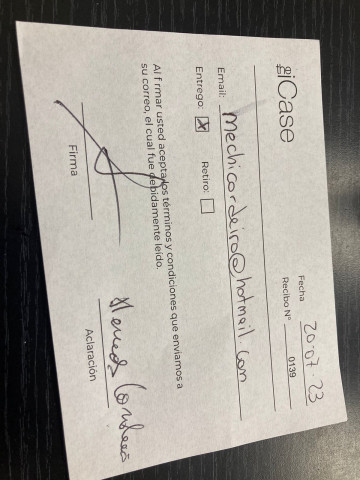 iCase
Fecha 20.07.23
Recibo N° 0139
Email: mechicordeiro@hotmail.com
Entrego: x Retiro:
Al firmar usted acepta los términos y condiciones que enviamos a
su correo, el cual fue debidamente leído.
Firma
Aclaración